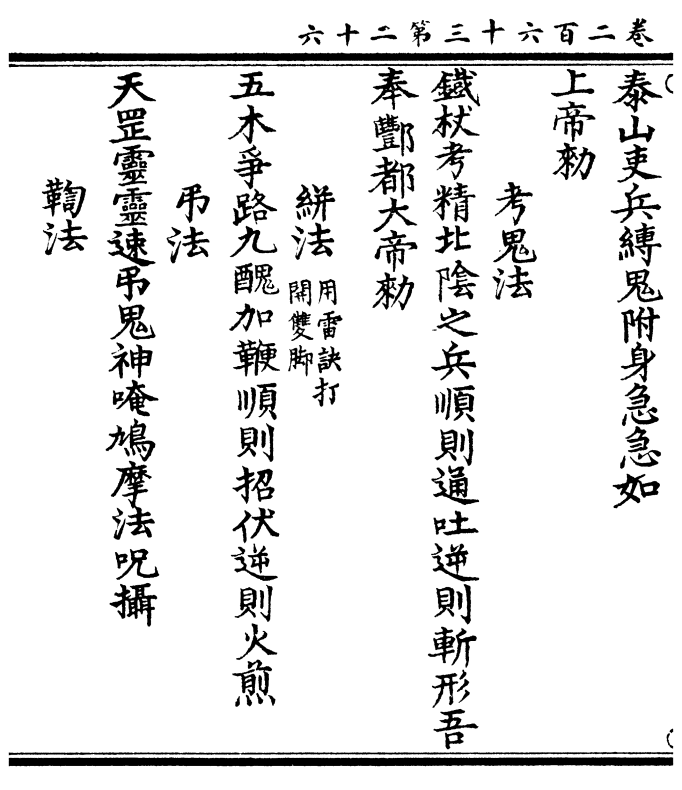 卷二百六十三第二十六
泰山吏兵縛鬼附身急急如
上帝勑
考鬼法
鐵杖考精北陰之兵順則通吐逆則斬形吾
奉酆都大帝勑
絣法用雷訣打開雙脚
五木爭路九醜加鞭順則招伏逆則火煎
弔法
天罡靈靈速弔鬼神唵鳩摩法呪攝
鞫法